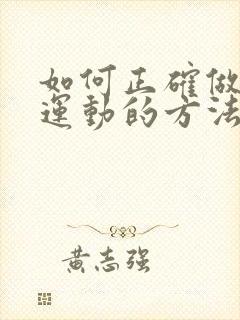 如何正確做
運動的方法
黃志强